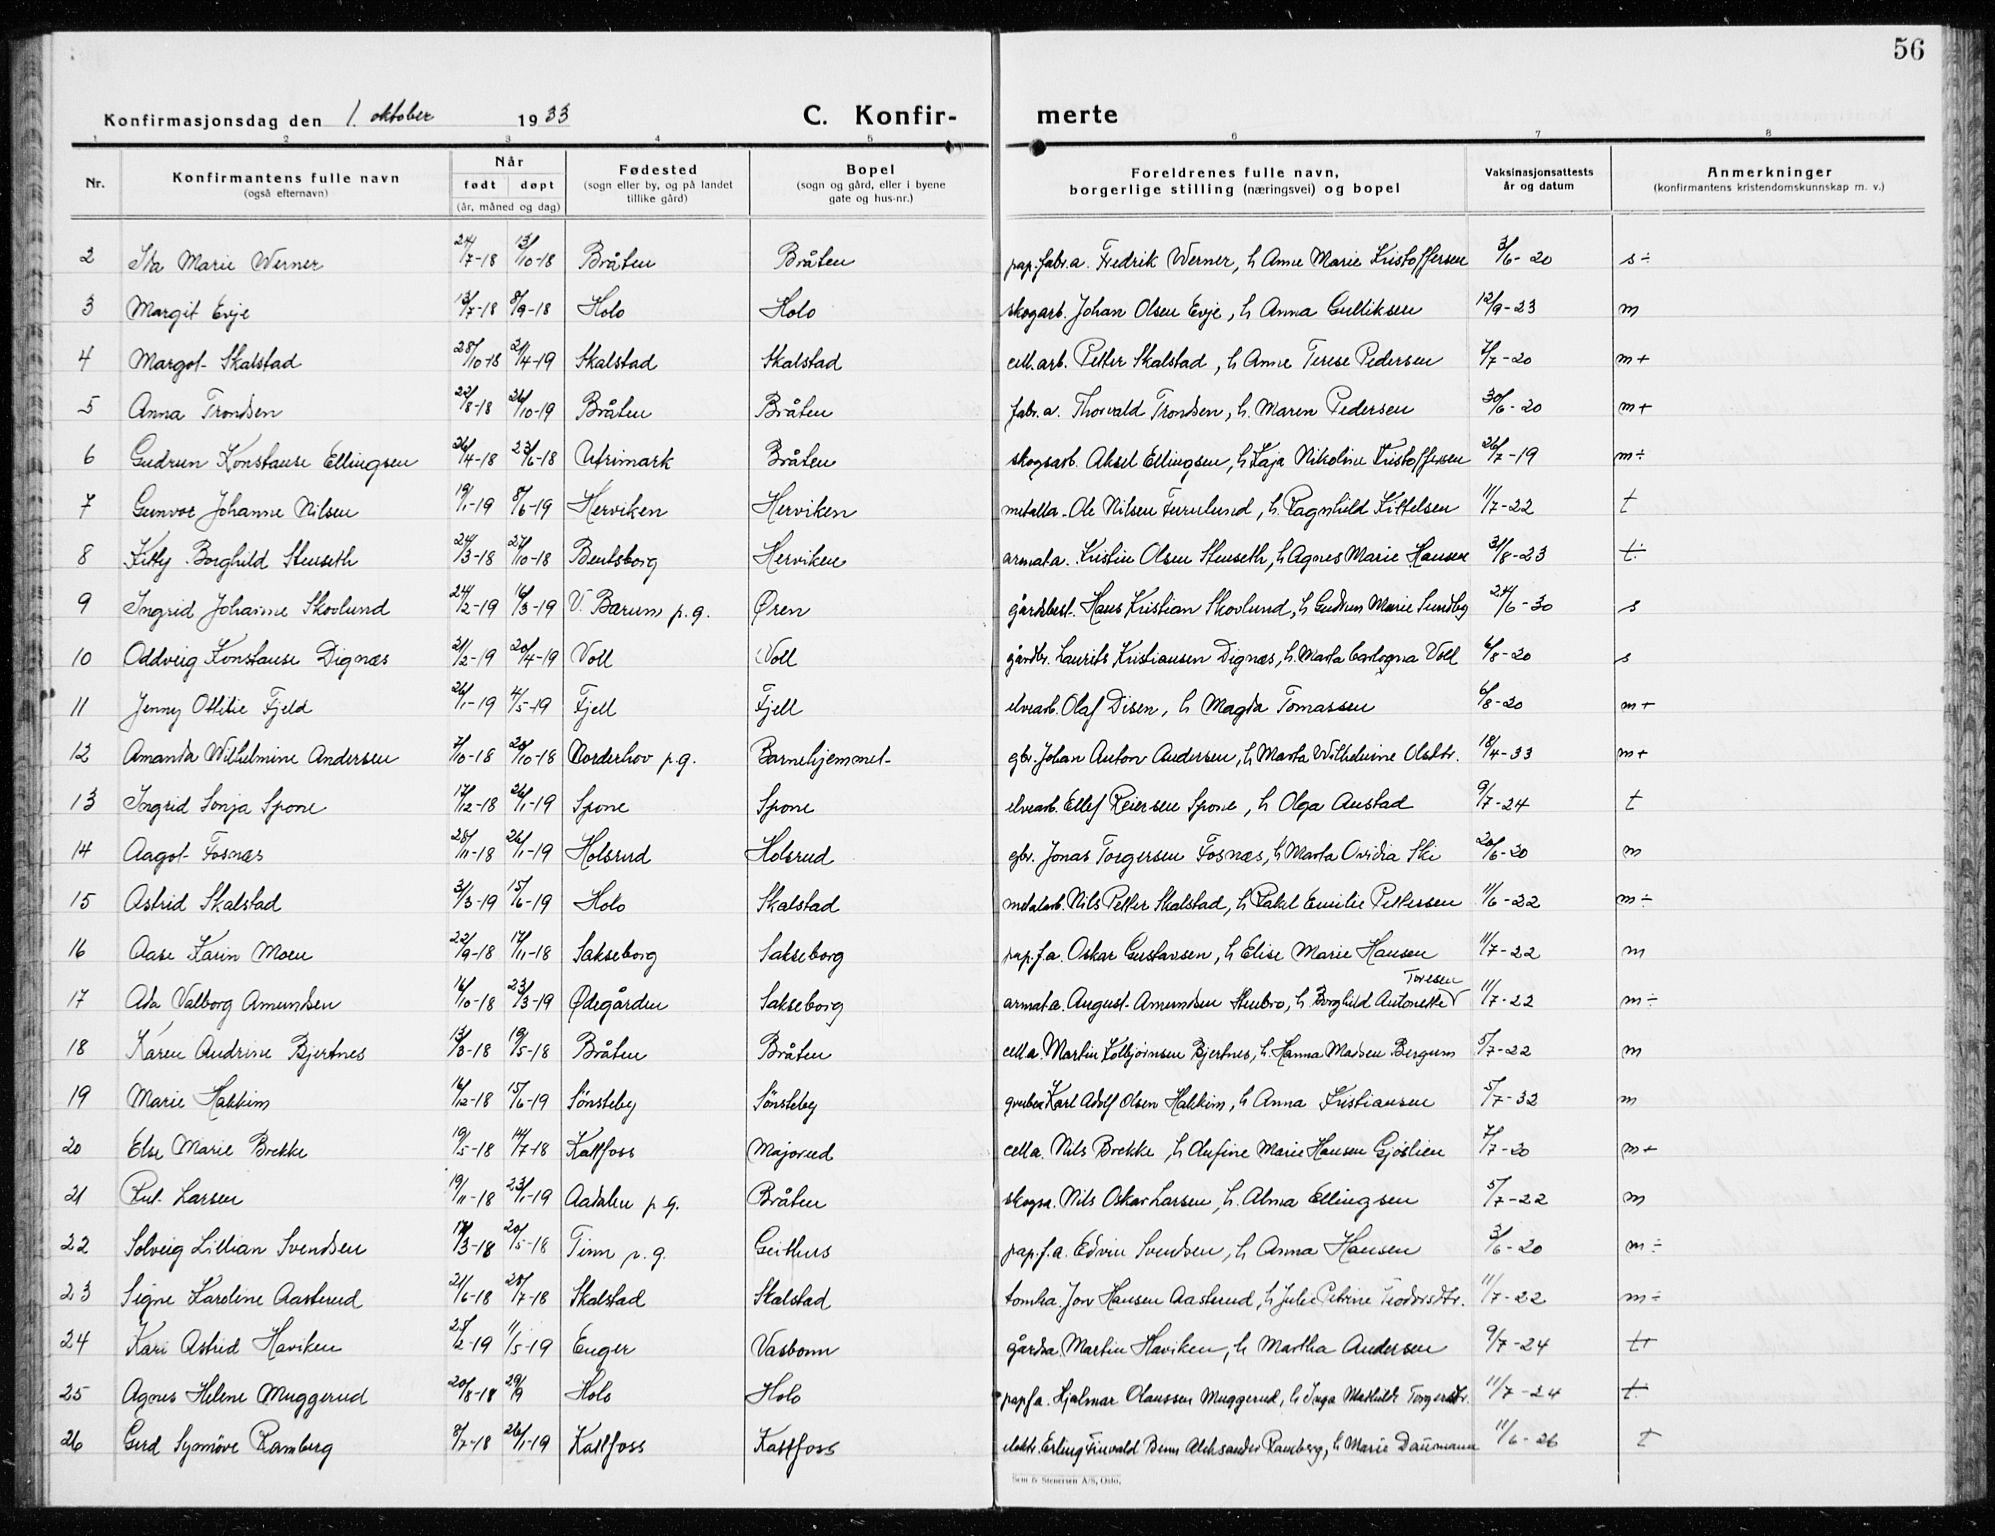 56
Konfirmasjonsdag den 1. oktober 1933 C. Konfir- merte
1 2 3 4 5 6 7 8
Nr. Konfirmantens fulle navn (også efternavn) Når født døpt (år, måned og dag) Fødested (sogn eller by, og på landet tillike gård) Bopel (sogn og gård, eller i byene gate og hus-nr.) Foreldrenes fulle navn, borgerlige stilling (næringsvei) og bopel Vaksinasjonsattests år og datum Anmerkninger (konfirmantens kristendomskunnskap m. v.)
2 Ida Marie Werner 24/7-18 13/10-18 Bråten Bråten pap.fabr.a. Fredrik Werner, h. Anne Marie Kristoffersen 3/6-20 s÷
3 Margit Evje 13/7-18 8/9-18 Holo Holo skogarb. Johan Olsen Evje, h. Anna Gulliksen 12/9-23 m
4 Margot Skalstad 28/10-18 21/4-19 Skalstad Skalstad cell.arb. Petter Skalstad, h. Anne Terese Pedersen 7/7-20 m+
5 Anna Trondsen 22/8-18 26/10-19 Bråten Bråten fabr.a. Thorvald Trondsen, h. Maren Pedersen 30/6-20 m+
6 Gudrun Konstanse Ellingsen 26/4-18 23/6-18 Utrimark Bråten skogsarb. Aksel Ellingsen, h. Kaja Nikoline Kristoffersen 26/7-19 m÷
7 Gunvor Johanne Nilsen 19/1-19 8/6-19 Herviken Herviken metalla. Ole Nilsen Furulund, h. Ragnhild Kittelsen 11/7-22 t
8 Kitty Borghild Stenseth 24/3-18 27/10-18 Bentsborg Herviken armat.a. Kristin Olsen Stenseth, h. Agnes Marie Hansen 31/8-23 t÷
9 Ingrid Johanne Skovlund 24/2-19 16/3-19 V. Bærum p.g. Øren gårdsbest. Hans Kristian Skovlund, h. Gudrun Marie Sundby 24/6-30 s
10 Oddveig Konstanse Dignæs 21/2-19 20/4-19 Voll Voll gårdbr. Laurits Kristiansen Dignæs, h. Marta Cartogna Voll 6/8-20 s
11 Jenny Ottilie Fjeld 26/1-19 4/5-19 Fjell Fjell elvearb. Olaf Disen, h. Magda Tomassen 6/8-20 m+
12 Amanda Wilhelmine Andersen 7/10-18 20/10-18 Norderhov p.g. Barnehjemmet gbr. Johan Anton Andersen, h. Marta Wilhelmine Olsdtr. 18/4-33 m+
13 Ingrid Sonja Spone 17/12-18 26/1-19 Spone Spone elvearb. Ellef Reiersen Spone, h. Olga Austad 9/7-24 t
14 Aagot Fosnæs 28/11-18 26/1-19 Holsrud Holsrud gbr. Jonas Torgersen Fosnæs, h. Marta Ovidia Ski 20/6-20 m
15 Astrid Skalstad 3/3-19 15/6-19 Holo Skalstad metalarb. Nils Petter Skalstad, h. Rakel Emilie Pettersen 11/6-22 m÷
16 Aase Karin Moen 22/9-18 17/11-18 Sakseborg Sakseborg pap.f.a. Oskar Gustavsen, h. Elise Marie Hansen 11/7-22 m
17 Ada Valborg Amundsen 16/10-18 23/3-19 Ødegården Sakseborg armat.a. August Amundsen Stenbro, h. Borghild Antonette Toresen 11/7-22 m÷
18 Karen Andrine Bjertnes 13/3-18 19/5-18 Bråten Bråten cell.a. Martin Kolbjørnsen Bjertnes, h. Hanna Madsen Bergum 5/7-22 m
19 Marie Hakkim 16/12-18 15/6-19 Sønsteby Sønsteby grubea. Karl Adolf Olsen Hakkim, h. Anna Kristiansen 5/7-32 m
20 Else Marie Brekke 19/5-18 14/7-18 Kattfoss Majorud cell.a. Nils Brekke, h. Anfine Marie Hansen Gjøslien 7/7-20 m+
21 Rut Larsen 19/11-18 23/1-19 Aadalen p.g. Bråten skogsa. Nils Oskar Larsen, h. Alma Ellingsen 5/7-22 m
22 Solveig Lillian Svendsen 17/3-18 20/5-18 Tinn p.g. Geithus pap.f.a. Edvin Svendsen, h. Anna Hansen 3/6-20 m÷
23 Signe Karoline Aasterud 21/6-18 28/7-18 Skalstad Skalstad Jon Hansen Aasterud, h. Julie Petrine Teodorsdtr. 11/7-22 m÷
24 Kari Astrid Haviken 25/2-19 11/5-19 Enger Vasbonn gårdsa. Martin Haviken, h. Martha Andersen 9/7-24 t+
25 Agnes Helene Muggerud 20/8-18 29/9 Holo Holo papf.a. Hjalmar Olaussen Muggerud, h. Inga Mathilde Torgersdtr. 11/7-24 t÷
26 Gerd Synnöve Ramberg 8/7-18 26/1-19 Kattfoss Kattfoss elektr. Erling Finvald Benn Aleksander Ramberg, h. Marie Daümann 11/6-26 t
Sem & Stenersen A/S, Oslo.